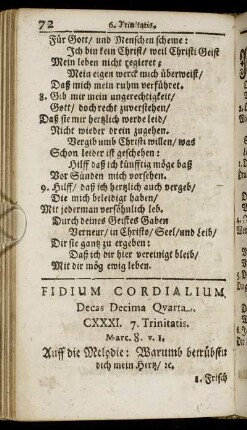 72 6. Trinitatis.
Für Gott/ und Menschen scheme:
Ich bin kein Christ/ weil Christi Geist
Mein leben nicht regieret;
Mein eigen werck mich überweist/
Daß mich mein ruhm verführet.
8. Gib mir mein ungerechtigkeit/
Gott/ doch recht zuverstehen/
Daß sie mir hertzlich werde leid/
Nicht wieder drein zugehen.
Vergib umb Christi willen/ was
Schon leider ist geschehen:
Hilff daß ich künfftig möge baß
Vor Sünden mich vorsehen.
9. Hilff/ daß ich hertzlich auch vergeb/
Die mich beleidigt haben/
Mit jederman versöhnlich leb.
Durch deines Geistes Gaben
Verneur/ in Christo/ Seel/und Leib/
Dir sie gantz zu ergeben:
Daß ich dir hier vereinigt bleib/
Mit dir mög ewig leben.
FIDIUM CORDIALIUM,
Decas Decima Qvarta.
CXXXI. 7. Trinitatis.
Marc. 8. v. 1.
Auff die Melodie: Warumb betrübstu
dich mein Hertz/ ⁊c.
1. Frisch